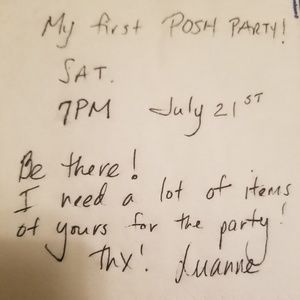 My first POSH PARTY!
SAT.
7PM July 21ST
Be there!
I need a lot of items
of yours for the party!
Thx! Luanne